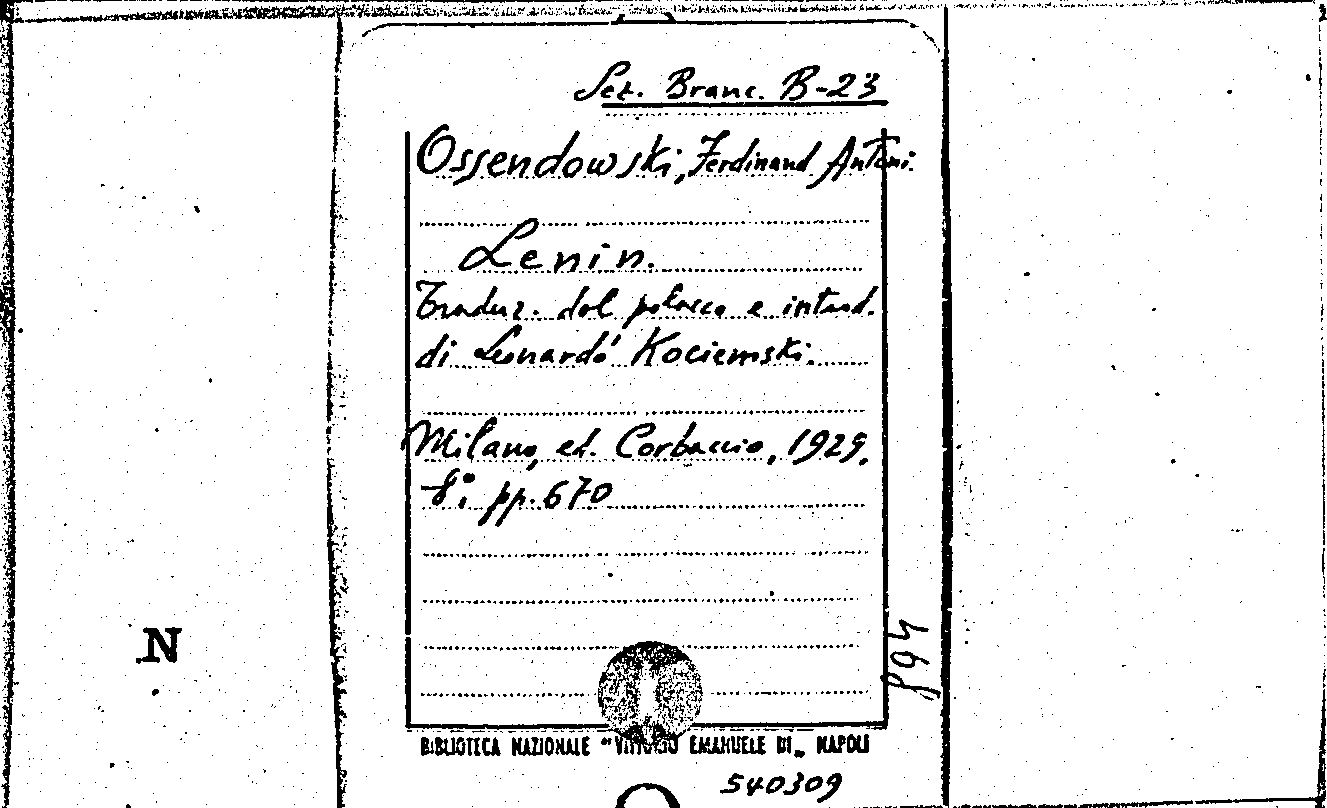 Sez. Branc. B-23
Ossendowski, Ferdinand Antoni.
Lenin.
Traduz. dal polacco e introd.
di Leonardo Kociemski.
Milano, ed. Corbaccio, 1929.
8°, pp. 670
894
N
BIBLIOTECA NAZIONALE "VITTORIO EMANUELE III„ NAPOLI
540309